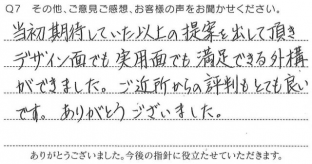 Q7 その他、ご意見ご感想、お客様の声をお聞かせください。
当初期待していた以上の提案を出して頂き
デザイン面でも実用面でも満足できる外構
ができました。ご近所からの評判もとても良い
です。ありがとうございました。
ありがとうございました。今後の指針に役立たせていただきます。